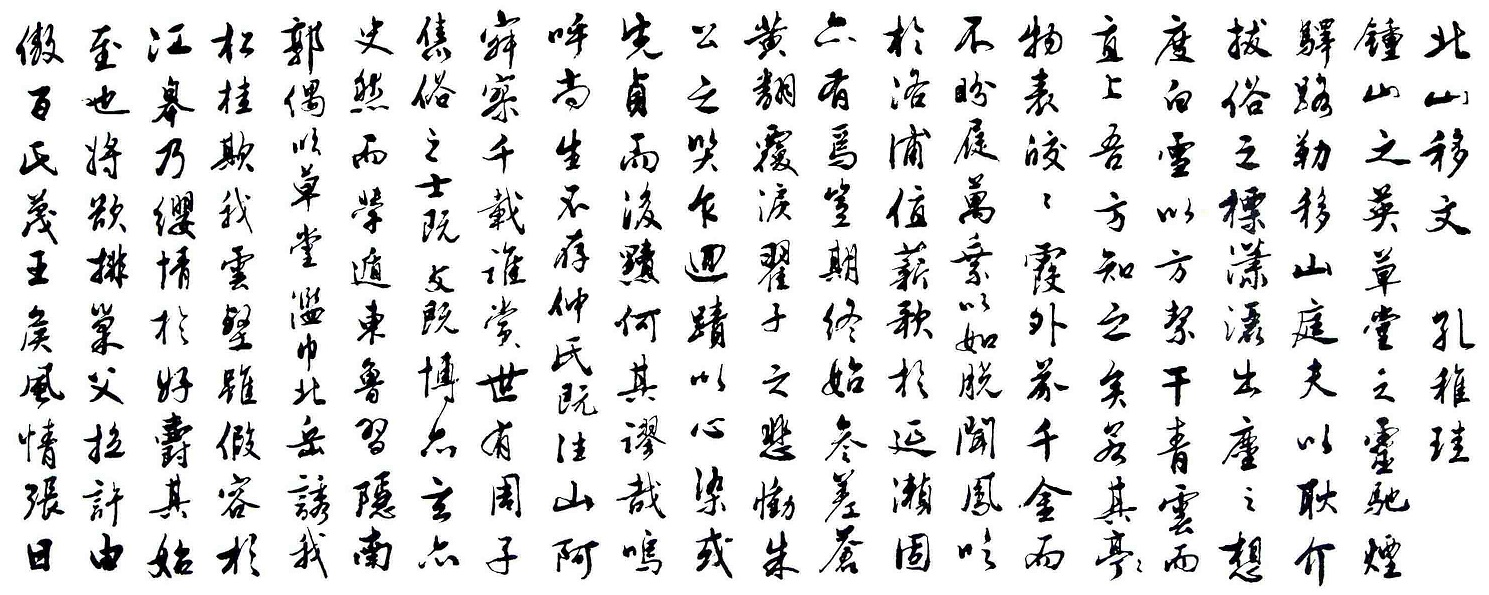 北山移文 孔稚珪
鍾山之英草堂之靈馳煙
驛路勒移山庭夫以耿介
拔俗之標瀟灑出塵之想
度白雪以方絜干青雲而
直上吾方知之矣若其亭〻
物表皎〻霞外芥千金而
不盼屣萬乘以如脫聞鳳吹
於洛浦值薪歌於延瀨固
亦有焉豈期終始參差蒼
黃翻覆淚翟子之悲慟朱
公之哭乍迴蹟以心染或
先貞而後黷何其謬哉嗚
呼尚生不存仲氏既往山阿
寂寥千載誰賞世有周子
雋俗之士既文既博亦玄亦
史然而學遁東魯習隱南
郭偶吹草堂濫巾北岳誘我
松桂欺我雲壑雖假容於
江皋乃纓情於好爵其始
至也將欲排巢父拉許由
傲百氏蔑王侯風情張日